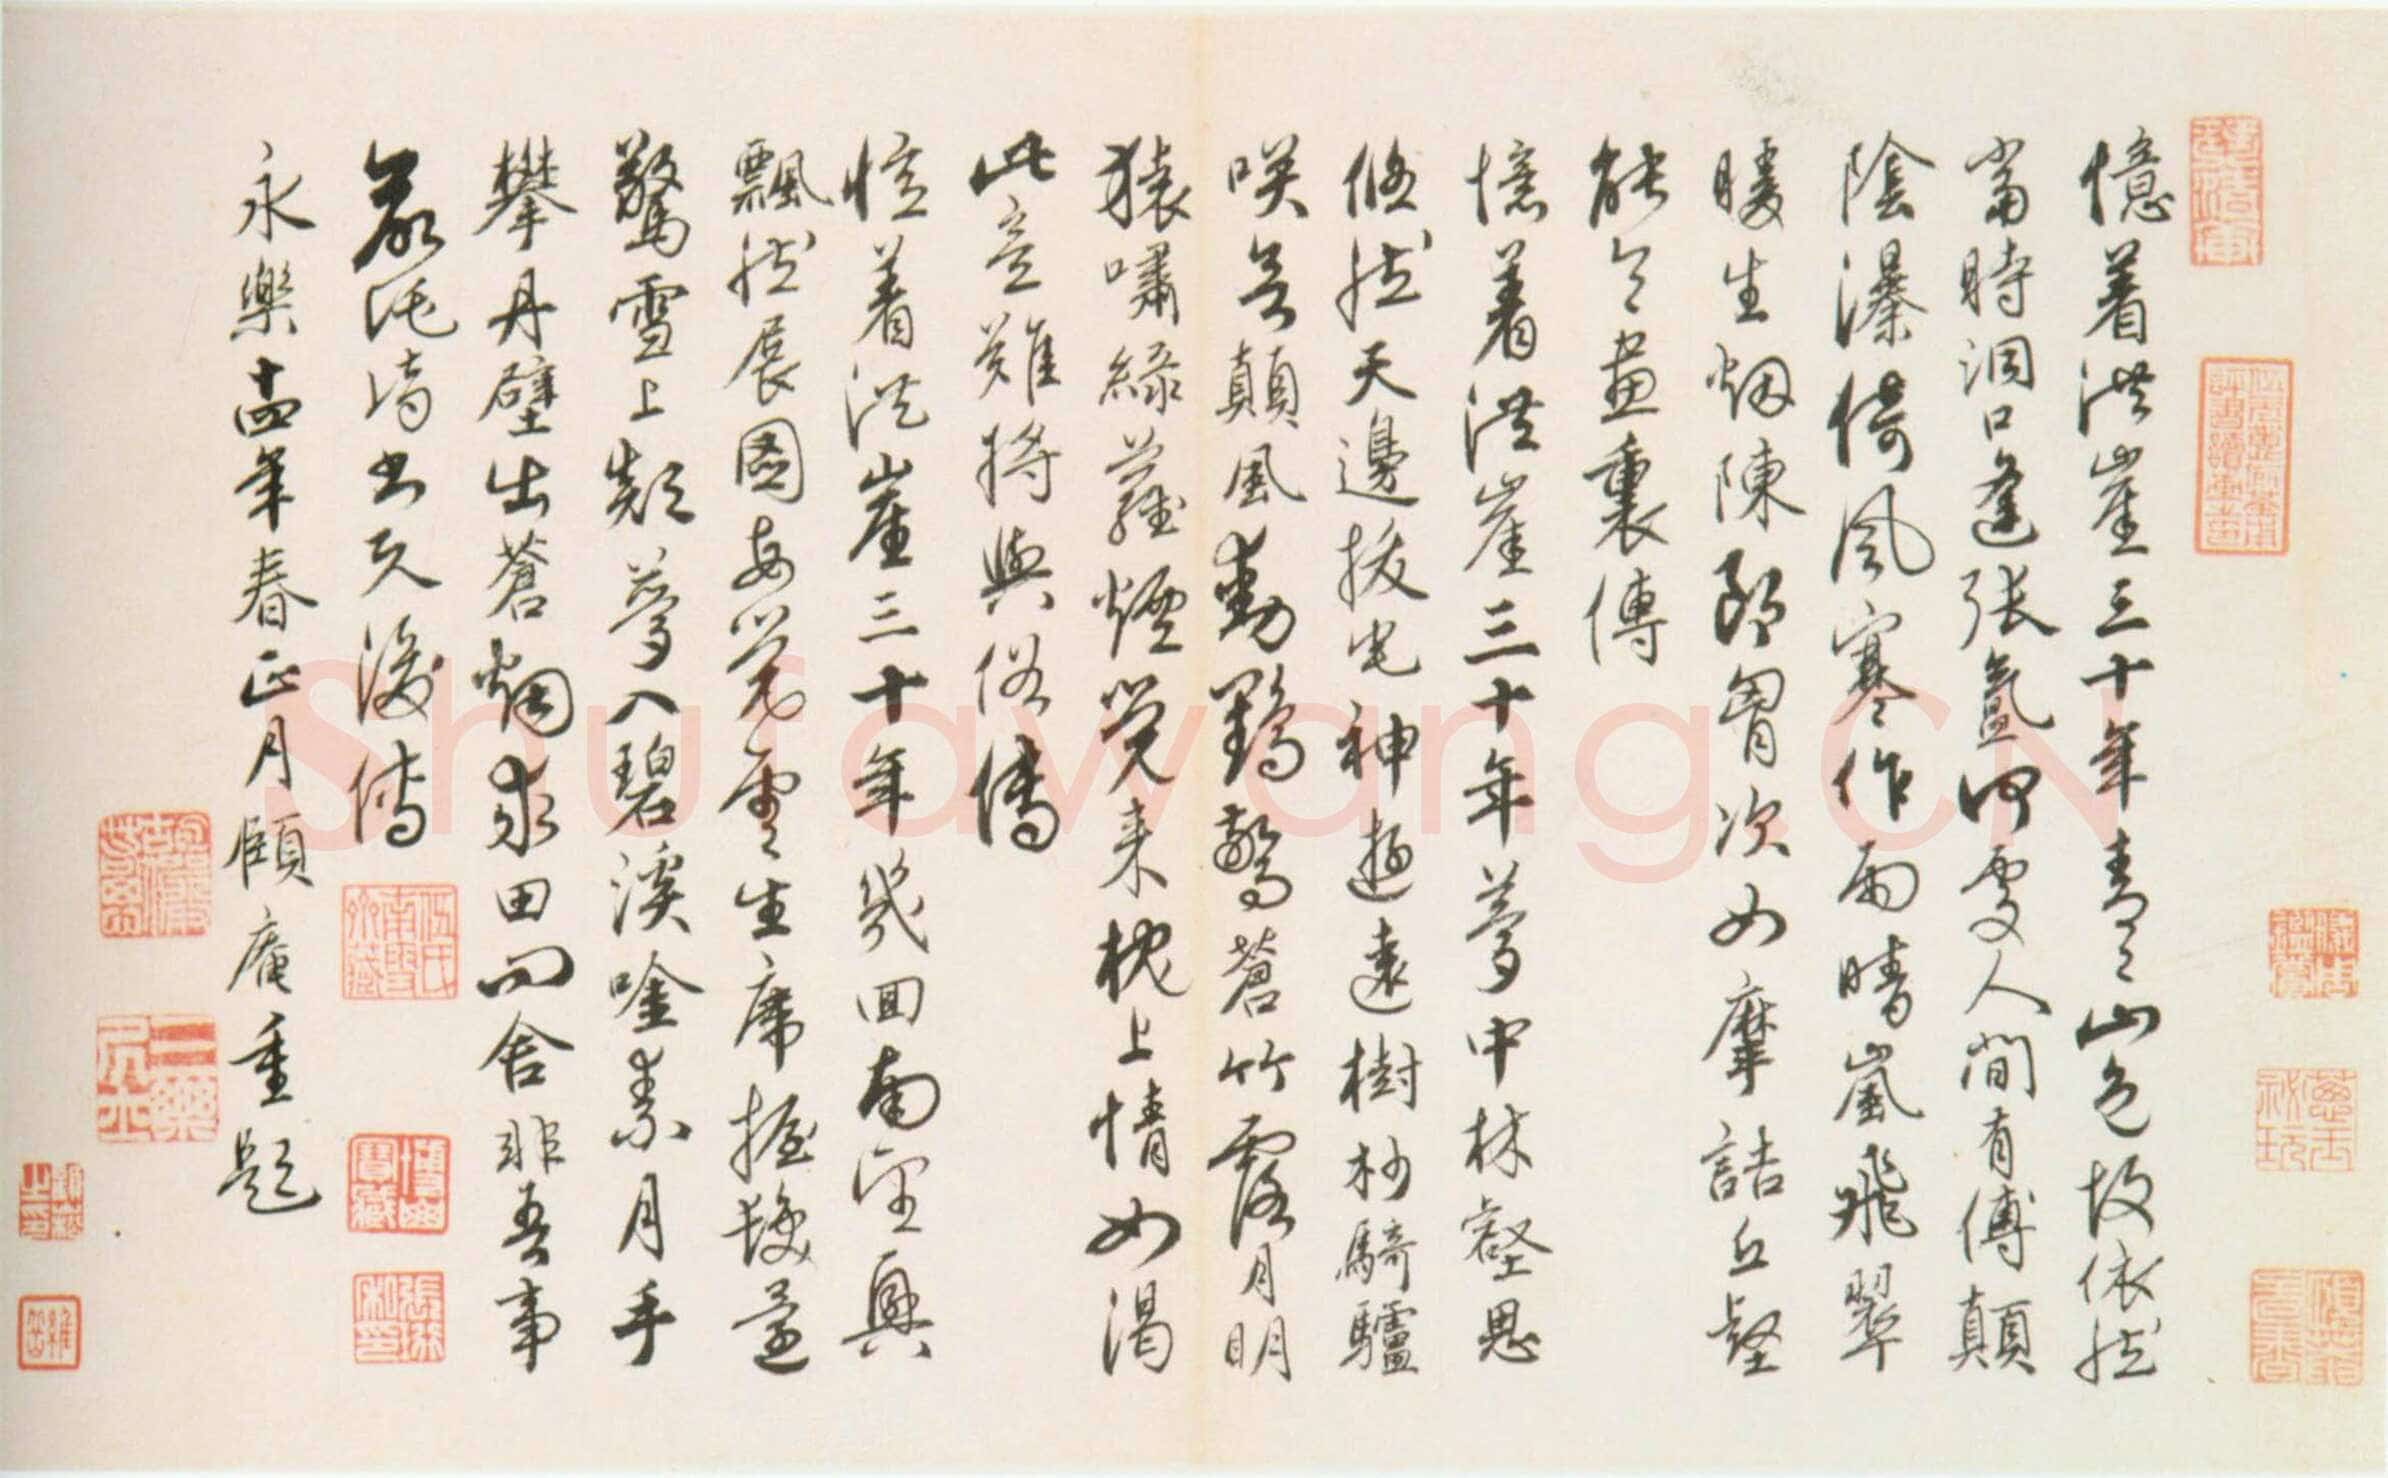 憶着洪崖三十年青〻山色故依然
當時洞口逢張氳何處人間有傅顛
陰瀑倚風寒作雨晴嵐飛翠
暖生烟陳郎胷次如摩詰丘壑
能令畫裏傳
憶着洪崖三十年夢中林壑思
翛然天邊拔宅神遊遠樹杪騎驢
咲益顛風動鶴驚蒼竹露月明
猿嘯綠蘿煙覺来枕上情如渴
此意難將與俗傳
憶着洪崖三十年幾回南望興
飄然展圖每覺雲生席握髮還
驚雪上顛夢入碧溪唫素月手
攀丹壁出蒼烟求田問舍非吾事
永樂十四年春正月頤庵重題
Shufawang.CN